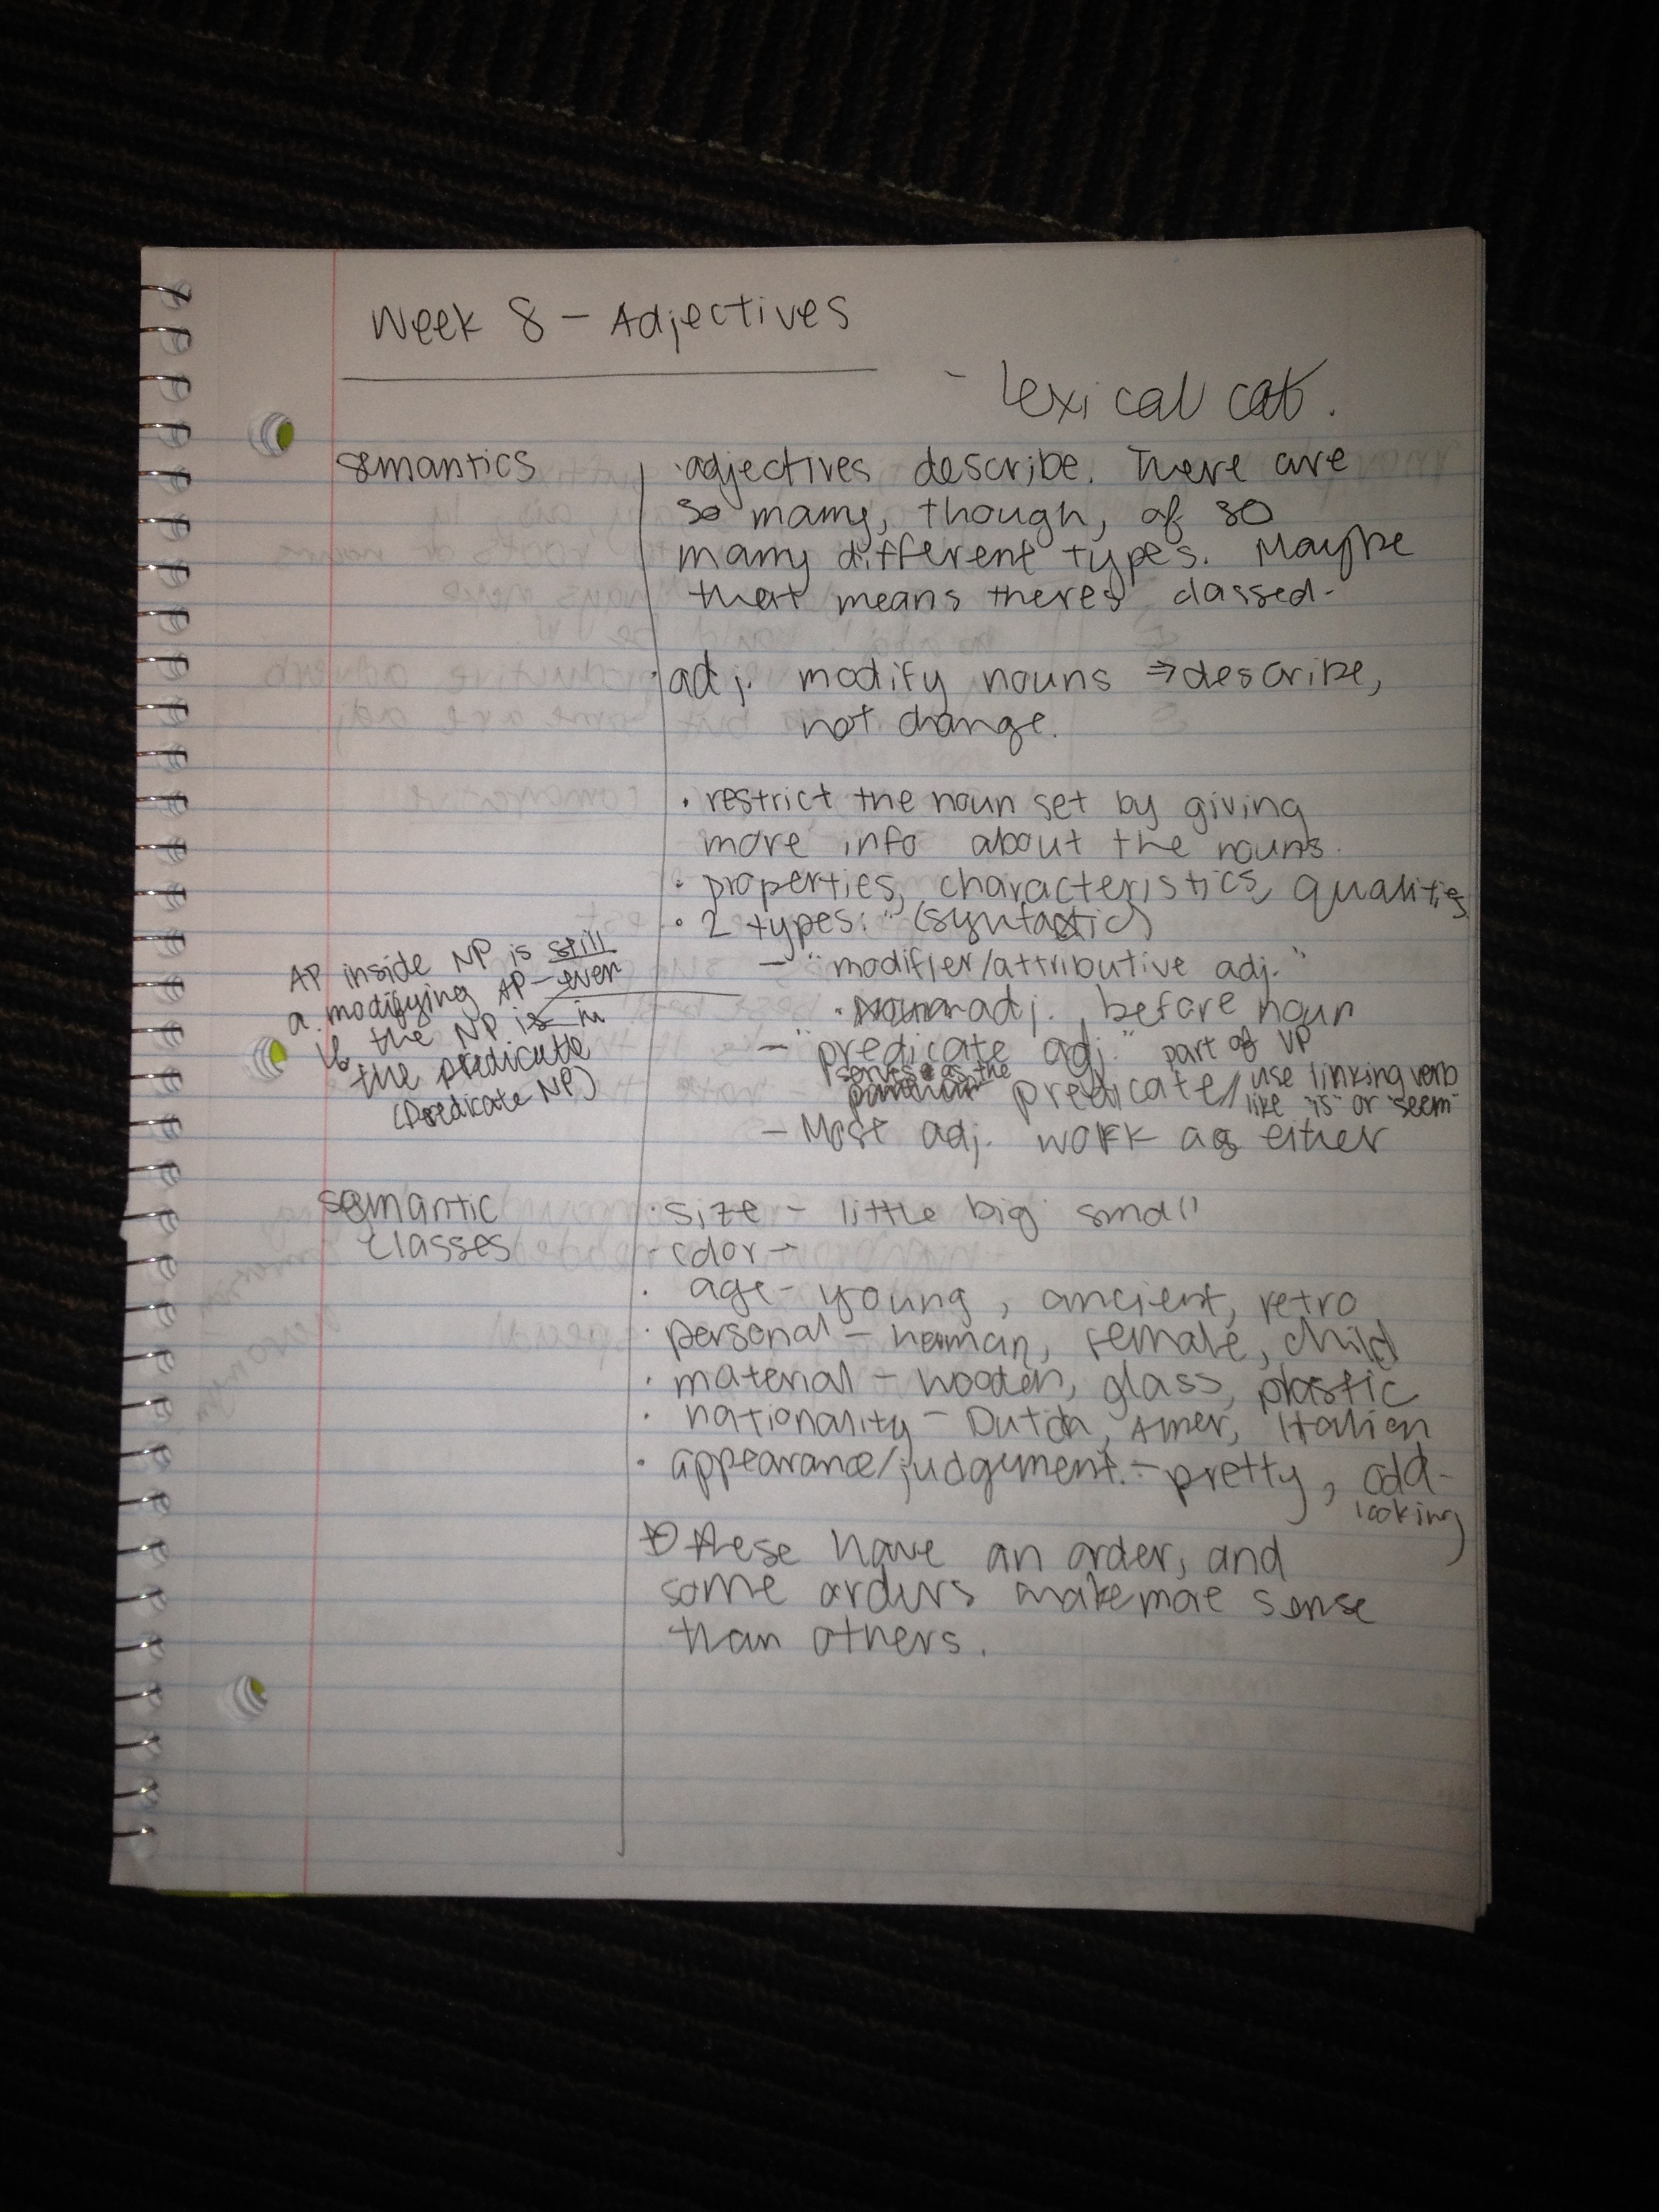 Week 8 - Adjectives
- Lexical cat.
semantics
· adjectives describe. There are
so many, though, of so
many different types. Maybe
that means theres classed.
· adj. modify nouns ⇒ describe,
not change.
· restrict the noun set by giving
more info about the nouns.
· properties, characteristics, qualities
· 2 types: (syntactic)
- "modifier/attributive adj."
· adj. before noun
- "predicate adj." part of VP
serves as the
predicate / use linking verb
like "is" or "seem"
- Most adj. work as either
AP inside NP is still
a modifying AP - even
if the NP is in
the predicate
(Predicate NP)
semantic
classes
· size - little big small
· color -
· age - young, ancient, retro
· personal - human, female, child
· material - wooden, glass, plastic
· nationality - Dutch, Amer, Italien
· appearance/judgement. - pretty, odd-
looking
these have an order, and
some orders make more sense
than others.